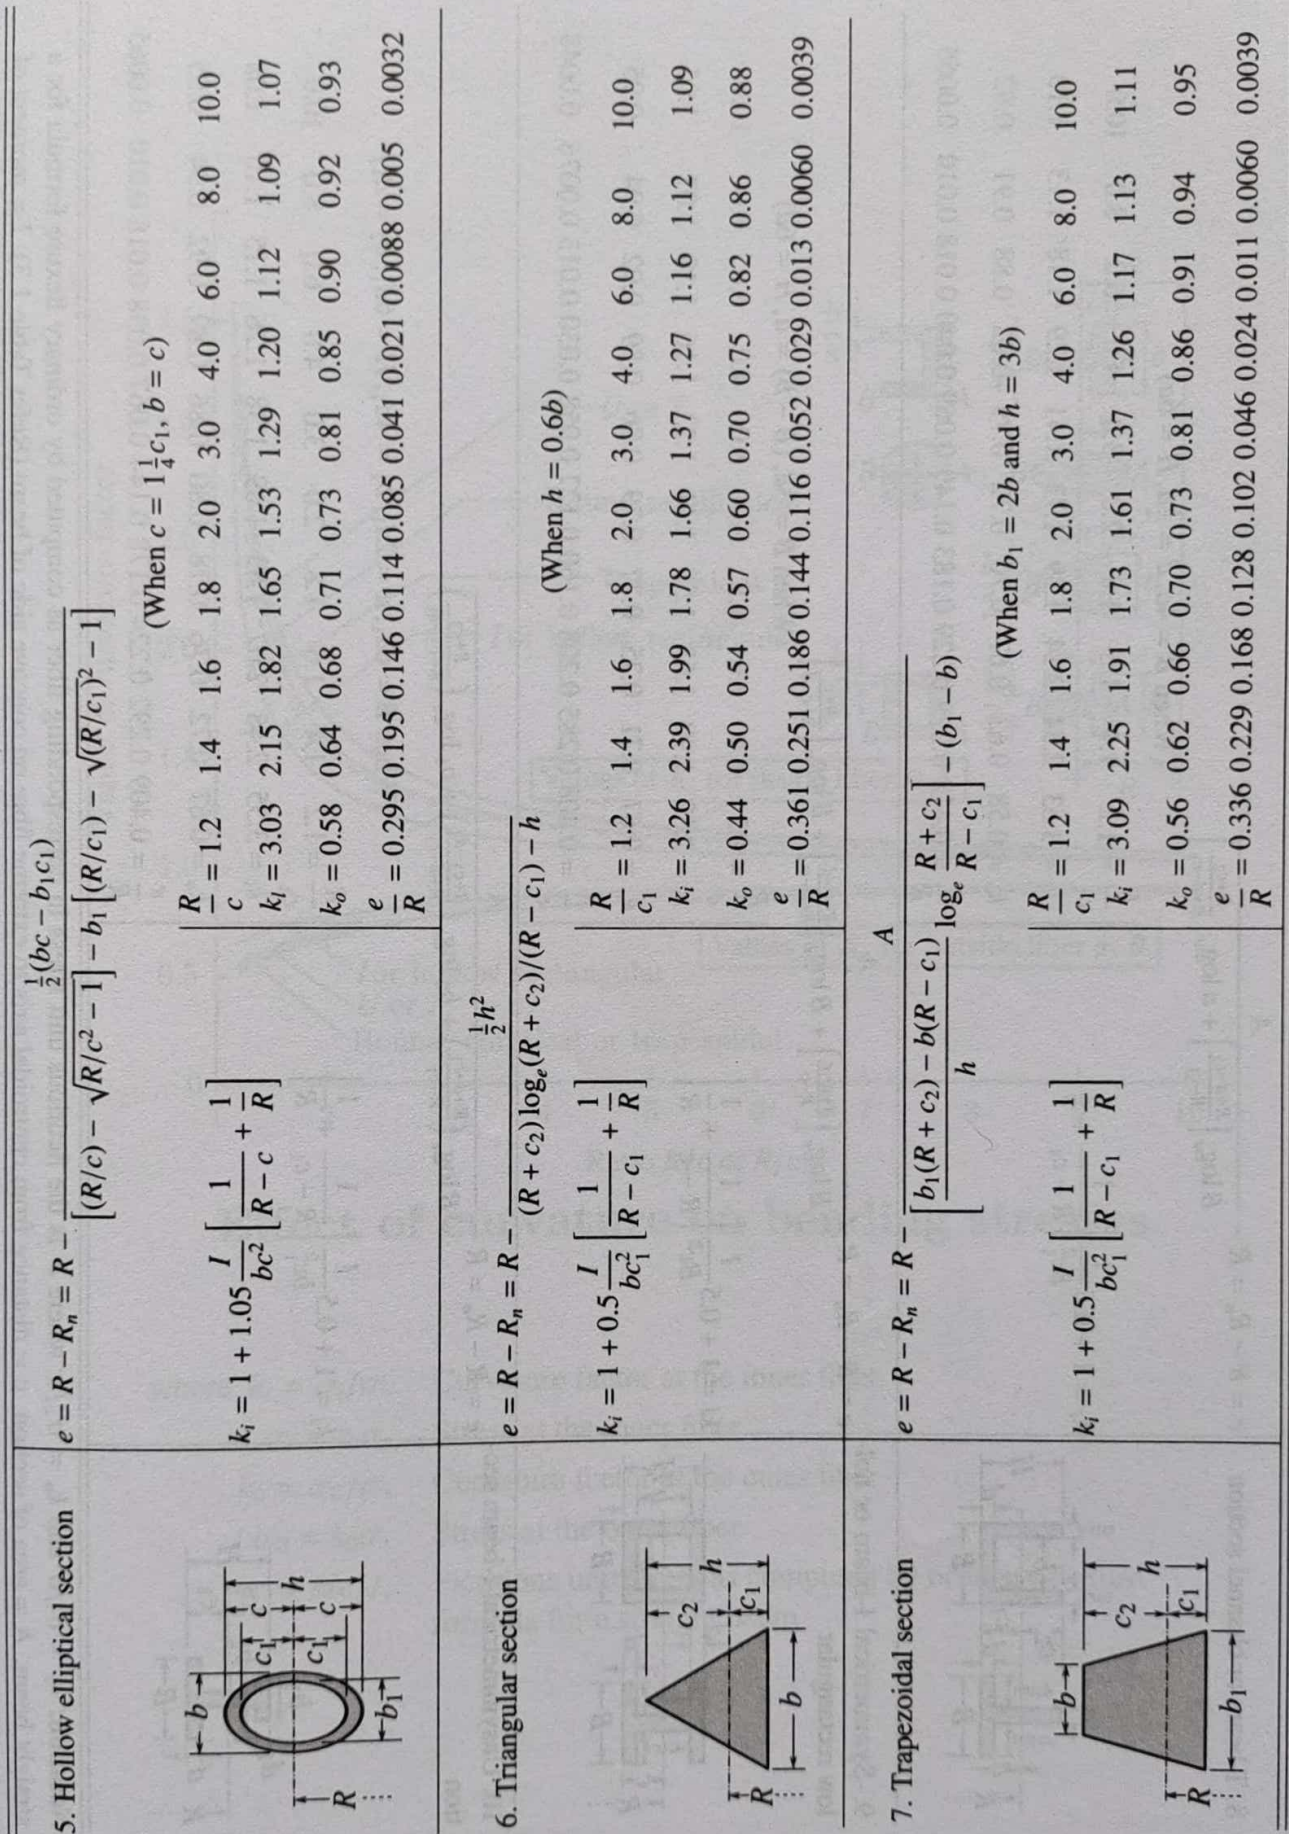 5. Hollow elliptical section
b
c1
c1
c
c
h
b1
R
e = R − Rₙ = R − ½(bc − b₁c₁) / ([(R/c) − √(R/c² − 1)] − b₁[(R/c₁) − √((R/c₁)² − 1)])
(When c = 1¼c₁, b = c)
kᵢ = 1 + 1.05 I/bc² [1/(R − c) + 1/R]
R/c = 1.2 1.4 1.6 1.8 2.0 3.0 4.0 6.0 8.0 10.0
kᵢ = 3.03 2.15 1.82 1.65 1.53 1.29 1.20 1.12 1.09 1.07
kₒ = 0.58 0.64 0.68 0.71 0.73 0.81 0.85 0.90 0.92 0.93
e/R = 0.295 0.195 0.146 0.114 0.085 0.041 0.021 0.0088 0.005 0.0032
6. Triangular section
c₂
h
c₁
b
R
e = R − Rₙ = R − ½h² / ((R + c₂) logₑ(R + c₂)/(R − c₁) − h)
(When h = 0.6b)
kᵢ = 1 + 0.5 I/bc₁² [1/(R − c₁) + 1/R]
R/c₁ = 1.2 1.4 1.6 1.8 2.0 3.0 4.0 6.0 8.0 10.0
kᵢ = 3.26 2.39 1.99 1.78 1.66 1.37 1.27 1.16 1.12 1.09
kₒ = 0.44 0.50 0.54 0.57 0.60 0.70 0.75 0.82 0.86 0.88
e/R = 0.361 0.251 0.186 0.144 0.116 0.052 0.029 0.013 0.0060 0.0039
7. Trapezoidal section
b
c₂
h
c₁
b₁
R
e = R − Rₙ = R − A / ([(b₁(R + c₂) − b(R − c₁))/h logₑ (R + c₂)/(R − c₁)] − (b₁ − b))
(When b₁ = 2b and h = 3b)
kᵢ = 1 + 0.5 I/bc₁² [1/(R − c₁) + 1/R]
R/c₁ = 1.2 1.4 1.6 1.8 2.0 3.0 4.0 6.0 8.0 10.0
kᵢ = 3.09 2.25 1.91 1.73 1.61 1.37 1.26 1.17 1.13 1.11
kₒ = 0.56 0.62 0.66 0.70 0.73 0.81 0.86 0.91 0.94 0.95
e/R = 0.336 0.229 0.168 0.128 0.102 0.046 0.024 0.011 0.0060 0.0039